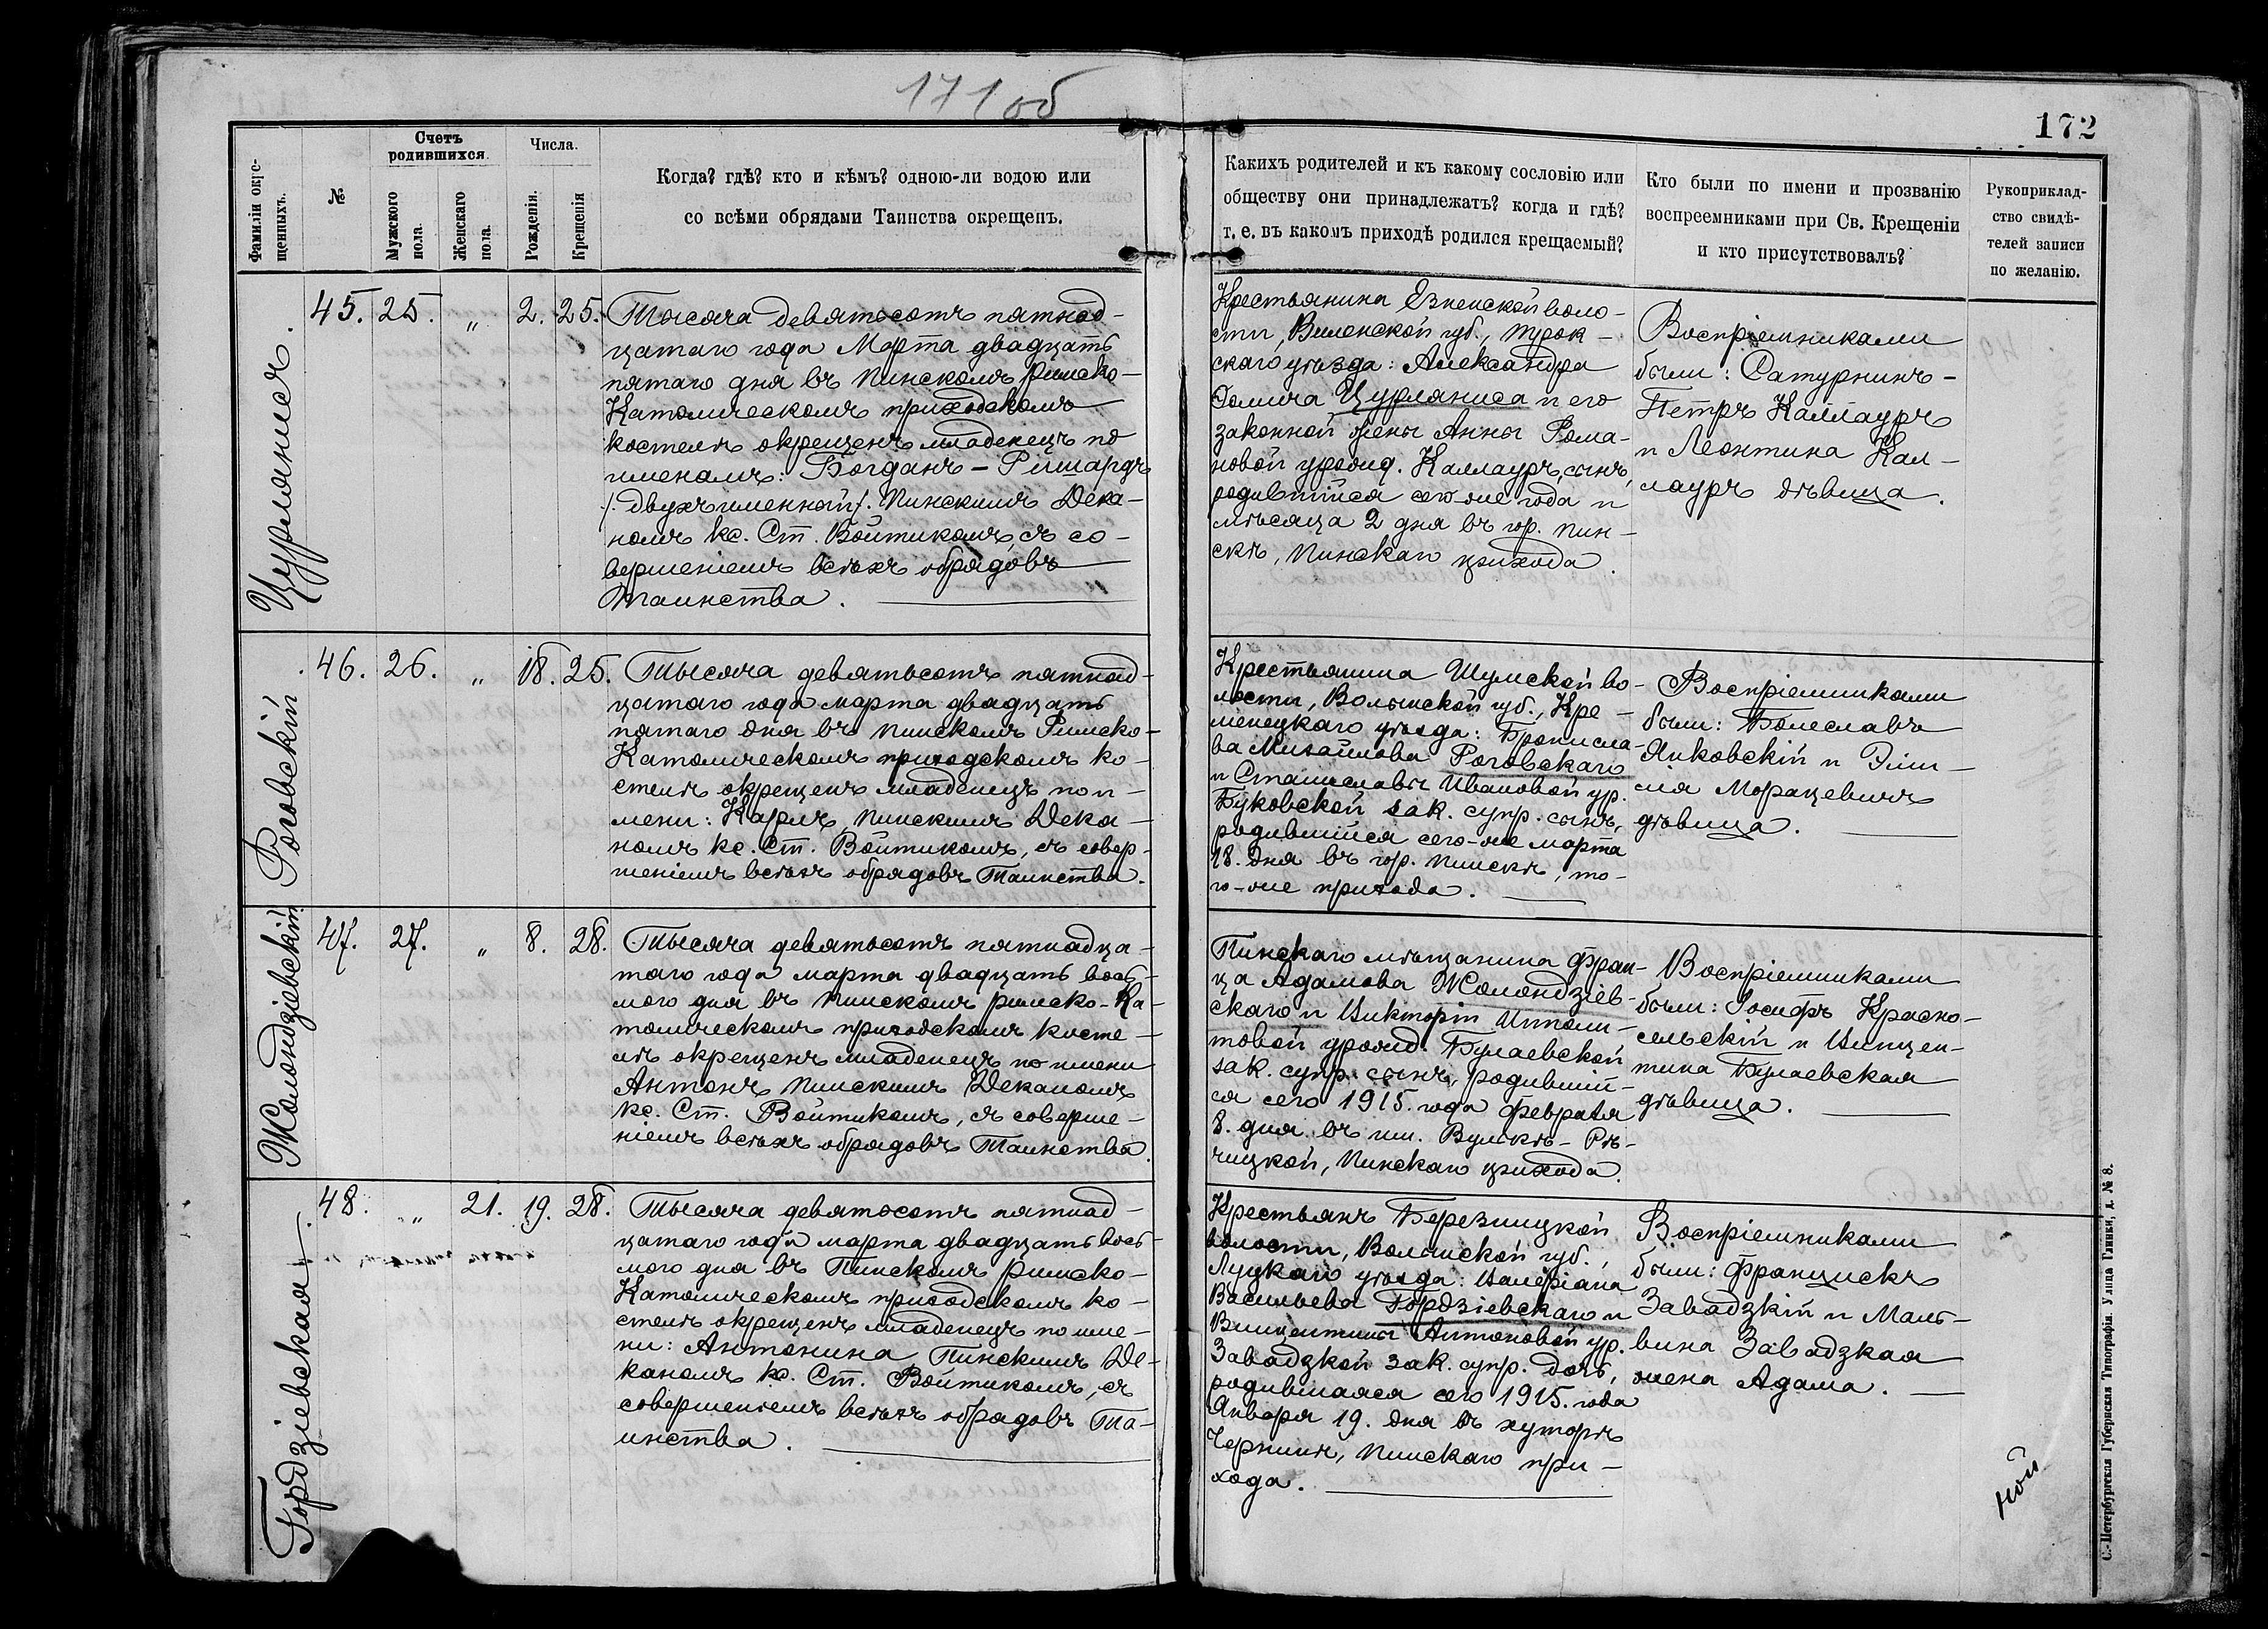 171 об
172
Фамиліи окрещенныхъ.
№
Счетъ родившихся.
Мужского пола.
Женскаго пола.
Числа.
Рожденія.
Крещенія
Когда? гдѣ? кто и кѣмъ? одною-ли водою или
со всѣми обрядами Таинства окрещенъ.
Какихъ родителей и къ какому сословію или
обществу они принадлежатъ? когда и гдѣ?
т. е. въ какомъ приходѣ родился крещаемый?
Кто были по имени и прозванію
воспреемниками при Св. Крещеніи
и кто присутствовалъ?
Рукоприклад-
ство свидѣ-
телей записи
по желанію.
Цурлянисъ.
45. 25. „ 2. 25.
Тысяча девятьсотъ пятнад-
цатаго года Марта двадцать
пятаго дня въ Пинскомъ римско-
Католическомъ приходскомъ
костелѣ окрещенъ младенецъ по
именамъ: Богданъ – Ришардъ
/. двухъименной/. Пинскимъ Дека-
номъ кс. Ст. Войтикомъ, съ со-
вершеніемъ всѣхъ обрядовъ
Таинства.
Крестьянина Езненской воло-
сти, Виленской губ., Трок-
скаго уѣзда: Александра
Цурляниса и его
законной жены Анны Рома-
новой урожд. Каллауръ, сынъ,
родившійся сего-же года и
мѣсяца 2 дня въ гор. Пин-
скѣ, Пинскаго прихода.
Воспріемниками
были: Сатурнинъ-
Петръ Каллауръ
и Леонтина Кал-
лауръ дѣвица.
Роговскій
46. 26. „ 18. 25.
Тысяча девятьсотъ пятнад-
цатаго года марта двадцать
пятаго дня въ Пинскомъ Римско-
Католическомъ приходскомъ ко-
стелѣ окрещенъ младенецъ по и-
мени: Карлъ, Пинскимъ Дека-
номъ кс. Ст. Войтикомъ, съ совер-
шеніемъ всѣхъ обрядовъ Таинства.
Крестьянина Шумской во-
лости, Волынской губ., Кре-
менецкаго уѣзда: Бронисла-
ва Михайлова Роговскаго
и Станиславы Ивановой ур.
Буковской зак. супр. сынъ,
родившійся сего-же марта
18. дня въ гор. Пинскѣ, то-
го-же прихода.
Воспріемниками
были: Болеславъ
Янковскій и Эми-
лія Морацевичъ
дѣвица.
Жолондзіевскій
47. 27. „ 8. 28.
Тысяча девятьсотъ пятнадца-
таго года марта двадцать вось-
мого дня въ Пинскомъ римско-Ка-
толическомъ приходскомъ косте-
лѣ окрещенъ младенецъ по имени
Антонъ Пинскимъ Деканомъ
кс. Ст. Войтикомъ, съ соверше-
ніемъ всѣхъ обрядовъ Таинства.
Пинскаго мѣщанина Фран-
ца Адамова Жолондзіев-
скаго и Викторіи Ипполи-
товой урожд. Булаевской
зак. супр. сынъ, родившій-
ся сего 1915. года февраля
8. дня въ им. Вулькѣ-Рѣ-
чицкой, Пинскаго прихода.
Воспріемниками
были: Іосифъ Красно-
сельскій и Винцен-
тина Булаевская
дѣвица.
Гордзіевская
48. „ 21. 19. 28.
Тысяча девятьсотъ пятнад-
цатаго года марта двадцать вось-
мого дня въ Пинскомъ римско-
Католическомъ приходскомъ ко-
стелѣ окрещенъ младенецъ по име-
ни: Антонина Пинскимъ Де-
каномъ кс. Ст. Войтикомъ, съ
совершеніемъ всѣхъ обрядовъ Та-
инства.
Крестьянъ Березницкой
волости, Волынской губ.,
Луцкаго уѣзда: Валеріана
Васильева Гордзіевскаго и
Винцентины Антоновой ур.
Завадзкой зак. супр. дочь,
родившаяся сего 1915. года
Января 19. дня въ хуторѣ
Чернинѣ, Пинскаго при-
хода.
Воспріемниками
были: Францискъ
Завадзкій и Маль-
вина Завадзкая
жена Адама.
ной
С.-Петербургская Губернская Типографія. Улица Глинки, д. № 8.